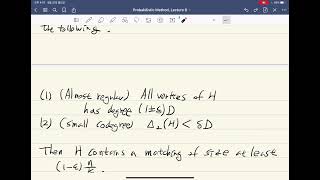 Probabilistic Method, Lecture 8
the following.
(1) (Almost regular) All vertices of H
has degree (1±δ)D
(2) (small codegree) Δ₂(H) < δD
Then H contains a matching of size at least
(1-ε) n/k.